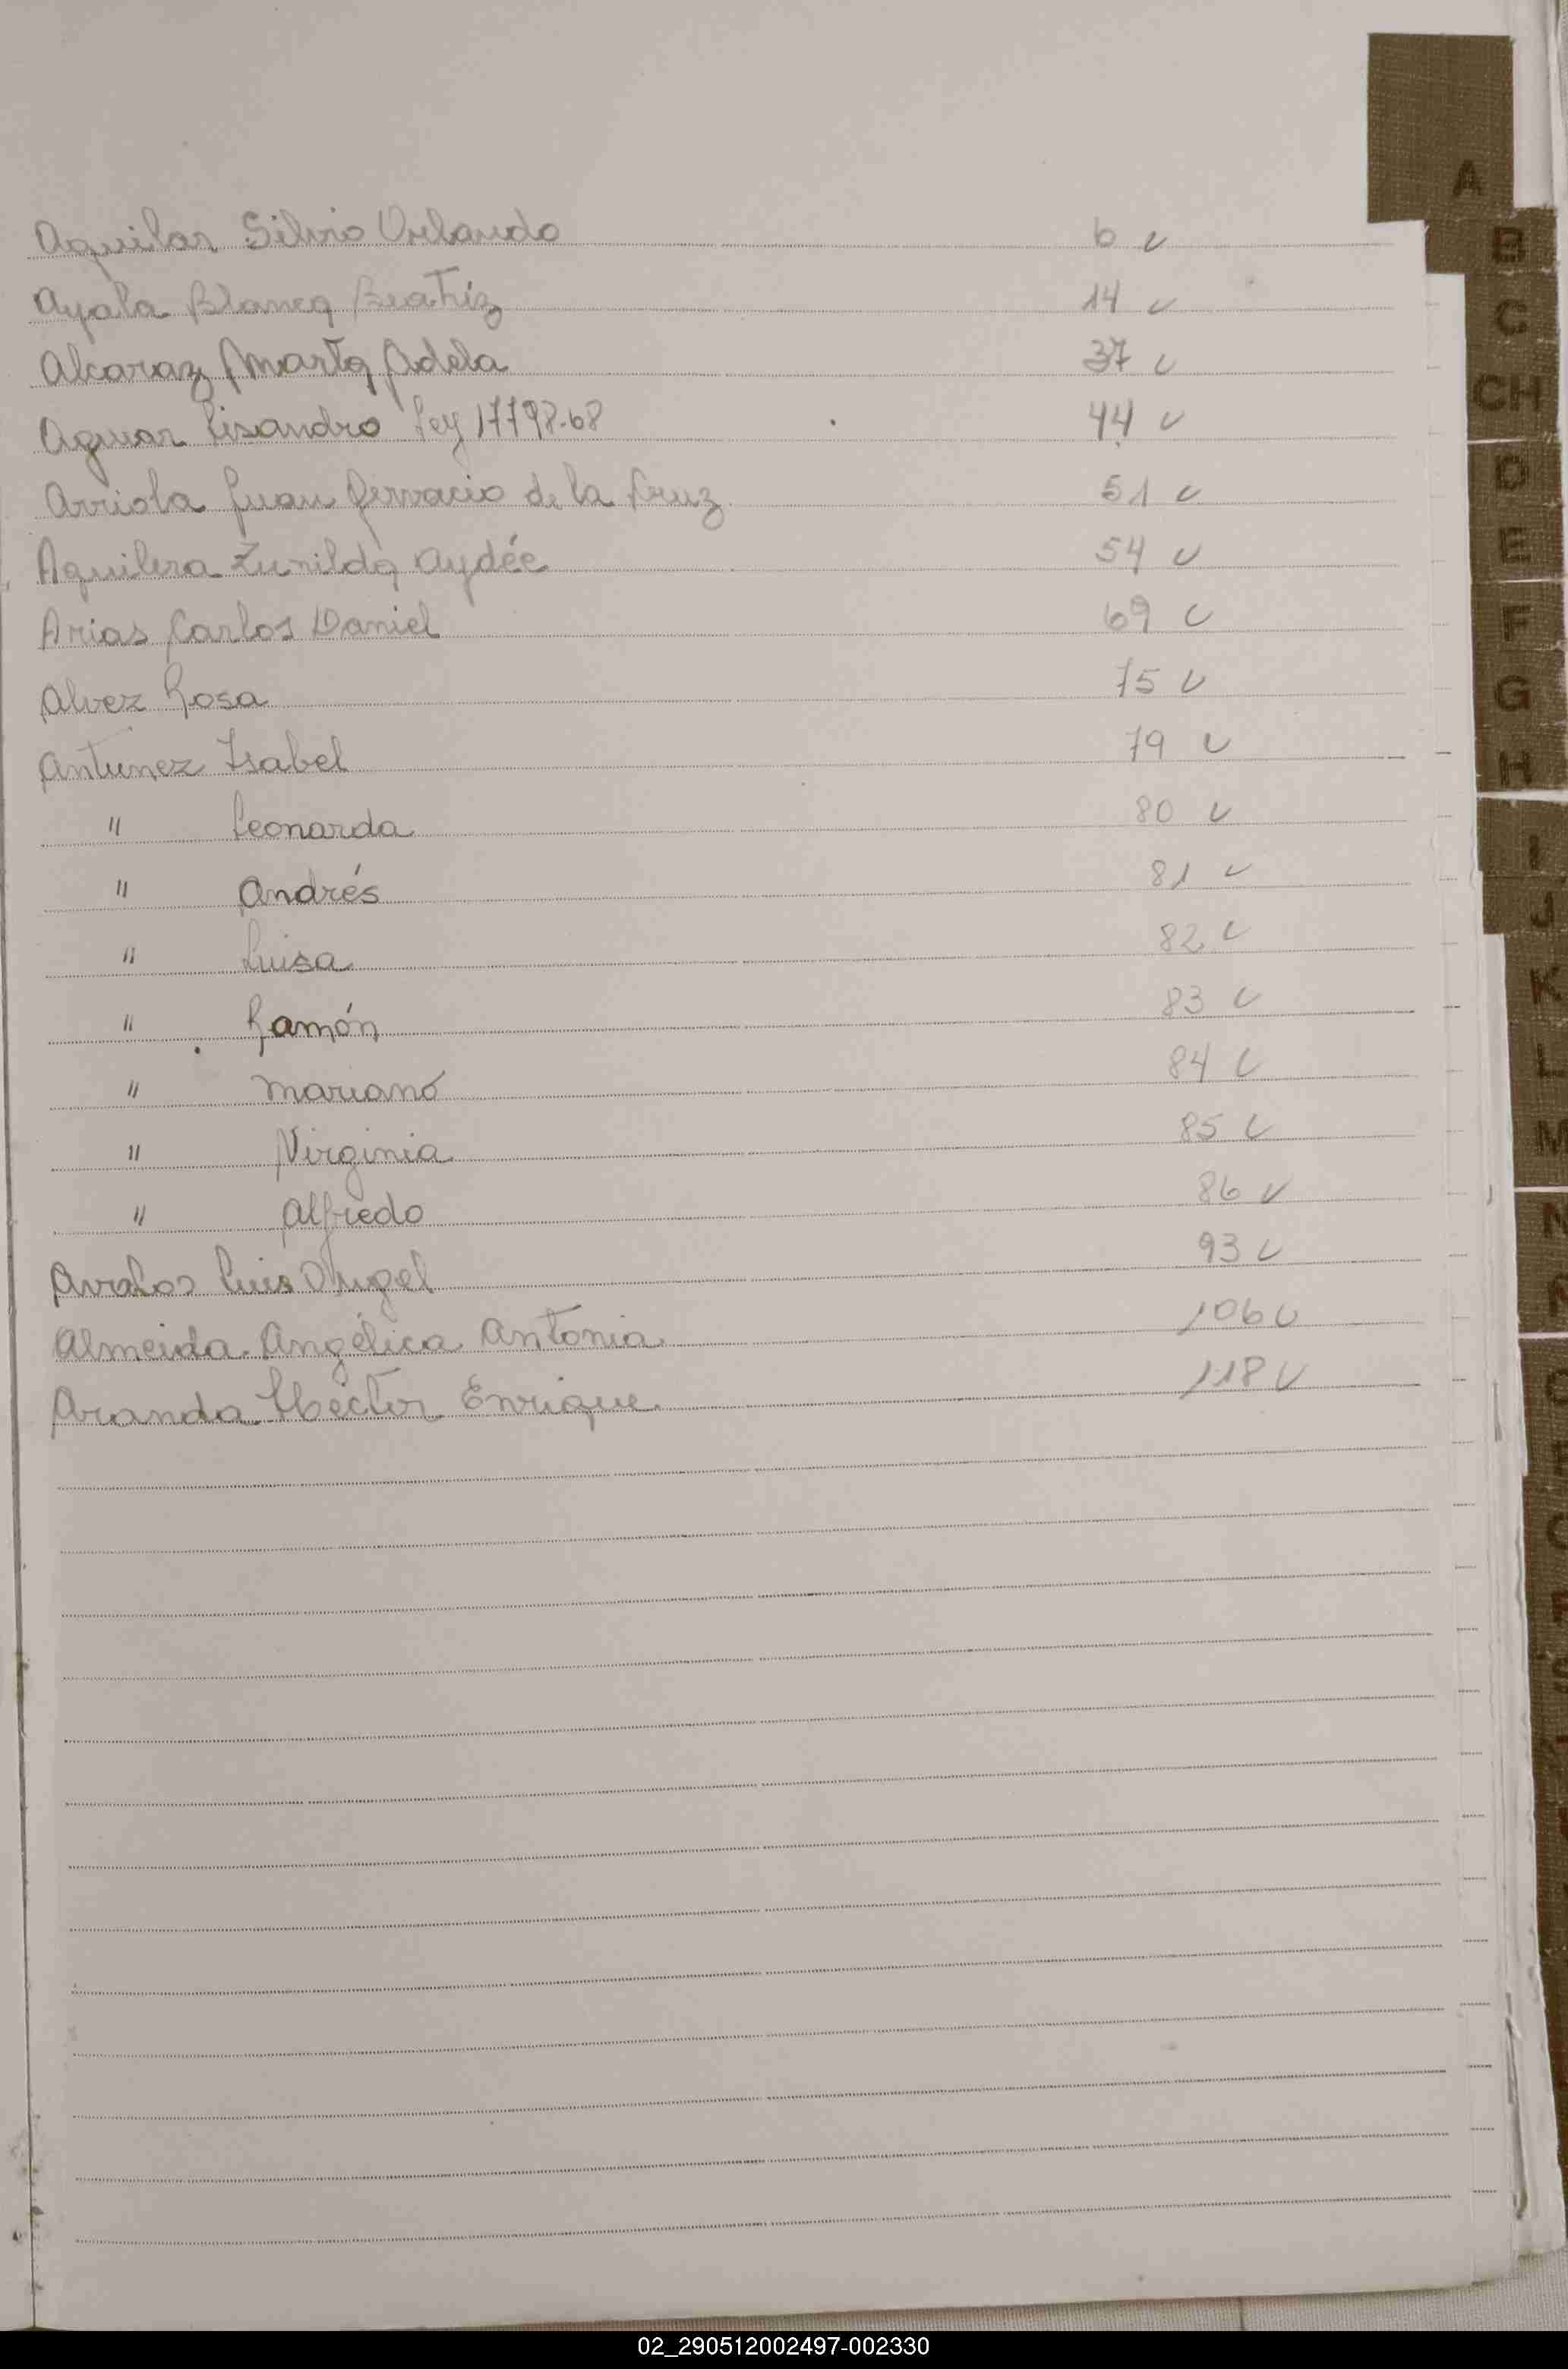 A
Aguilar Silvio Orlando 6 v
B
Ayala Blanca Beatríz 14 v
C
Alcaraz Marta Adela 37 v
CH
Aguiar Lisandro Ley 17798-68 44 v
D
Arriola Juan Gervacio de la Cruz 51 v
E
Aguilera Zunilda Aydée 54 v
F
Arias Carlos Daniel 69 v
G
Alvez Rosa 75 v
H
Antunez Isabel 79 v
I
" Leonarda 80 v
J
" Andrés 81 v
" Luisa 82 v
K
" Ramón 83 v
L
" Mariano 84 v
M
" Virginia 85 v
N
" Alfredo 86 v
Avalos Luis Angel 93 v
Almeida Angélica Antonia 106 v
Aranda Héctor Enrique 118 v
02_290512002497-002330